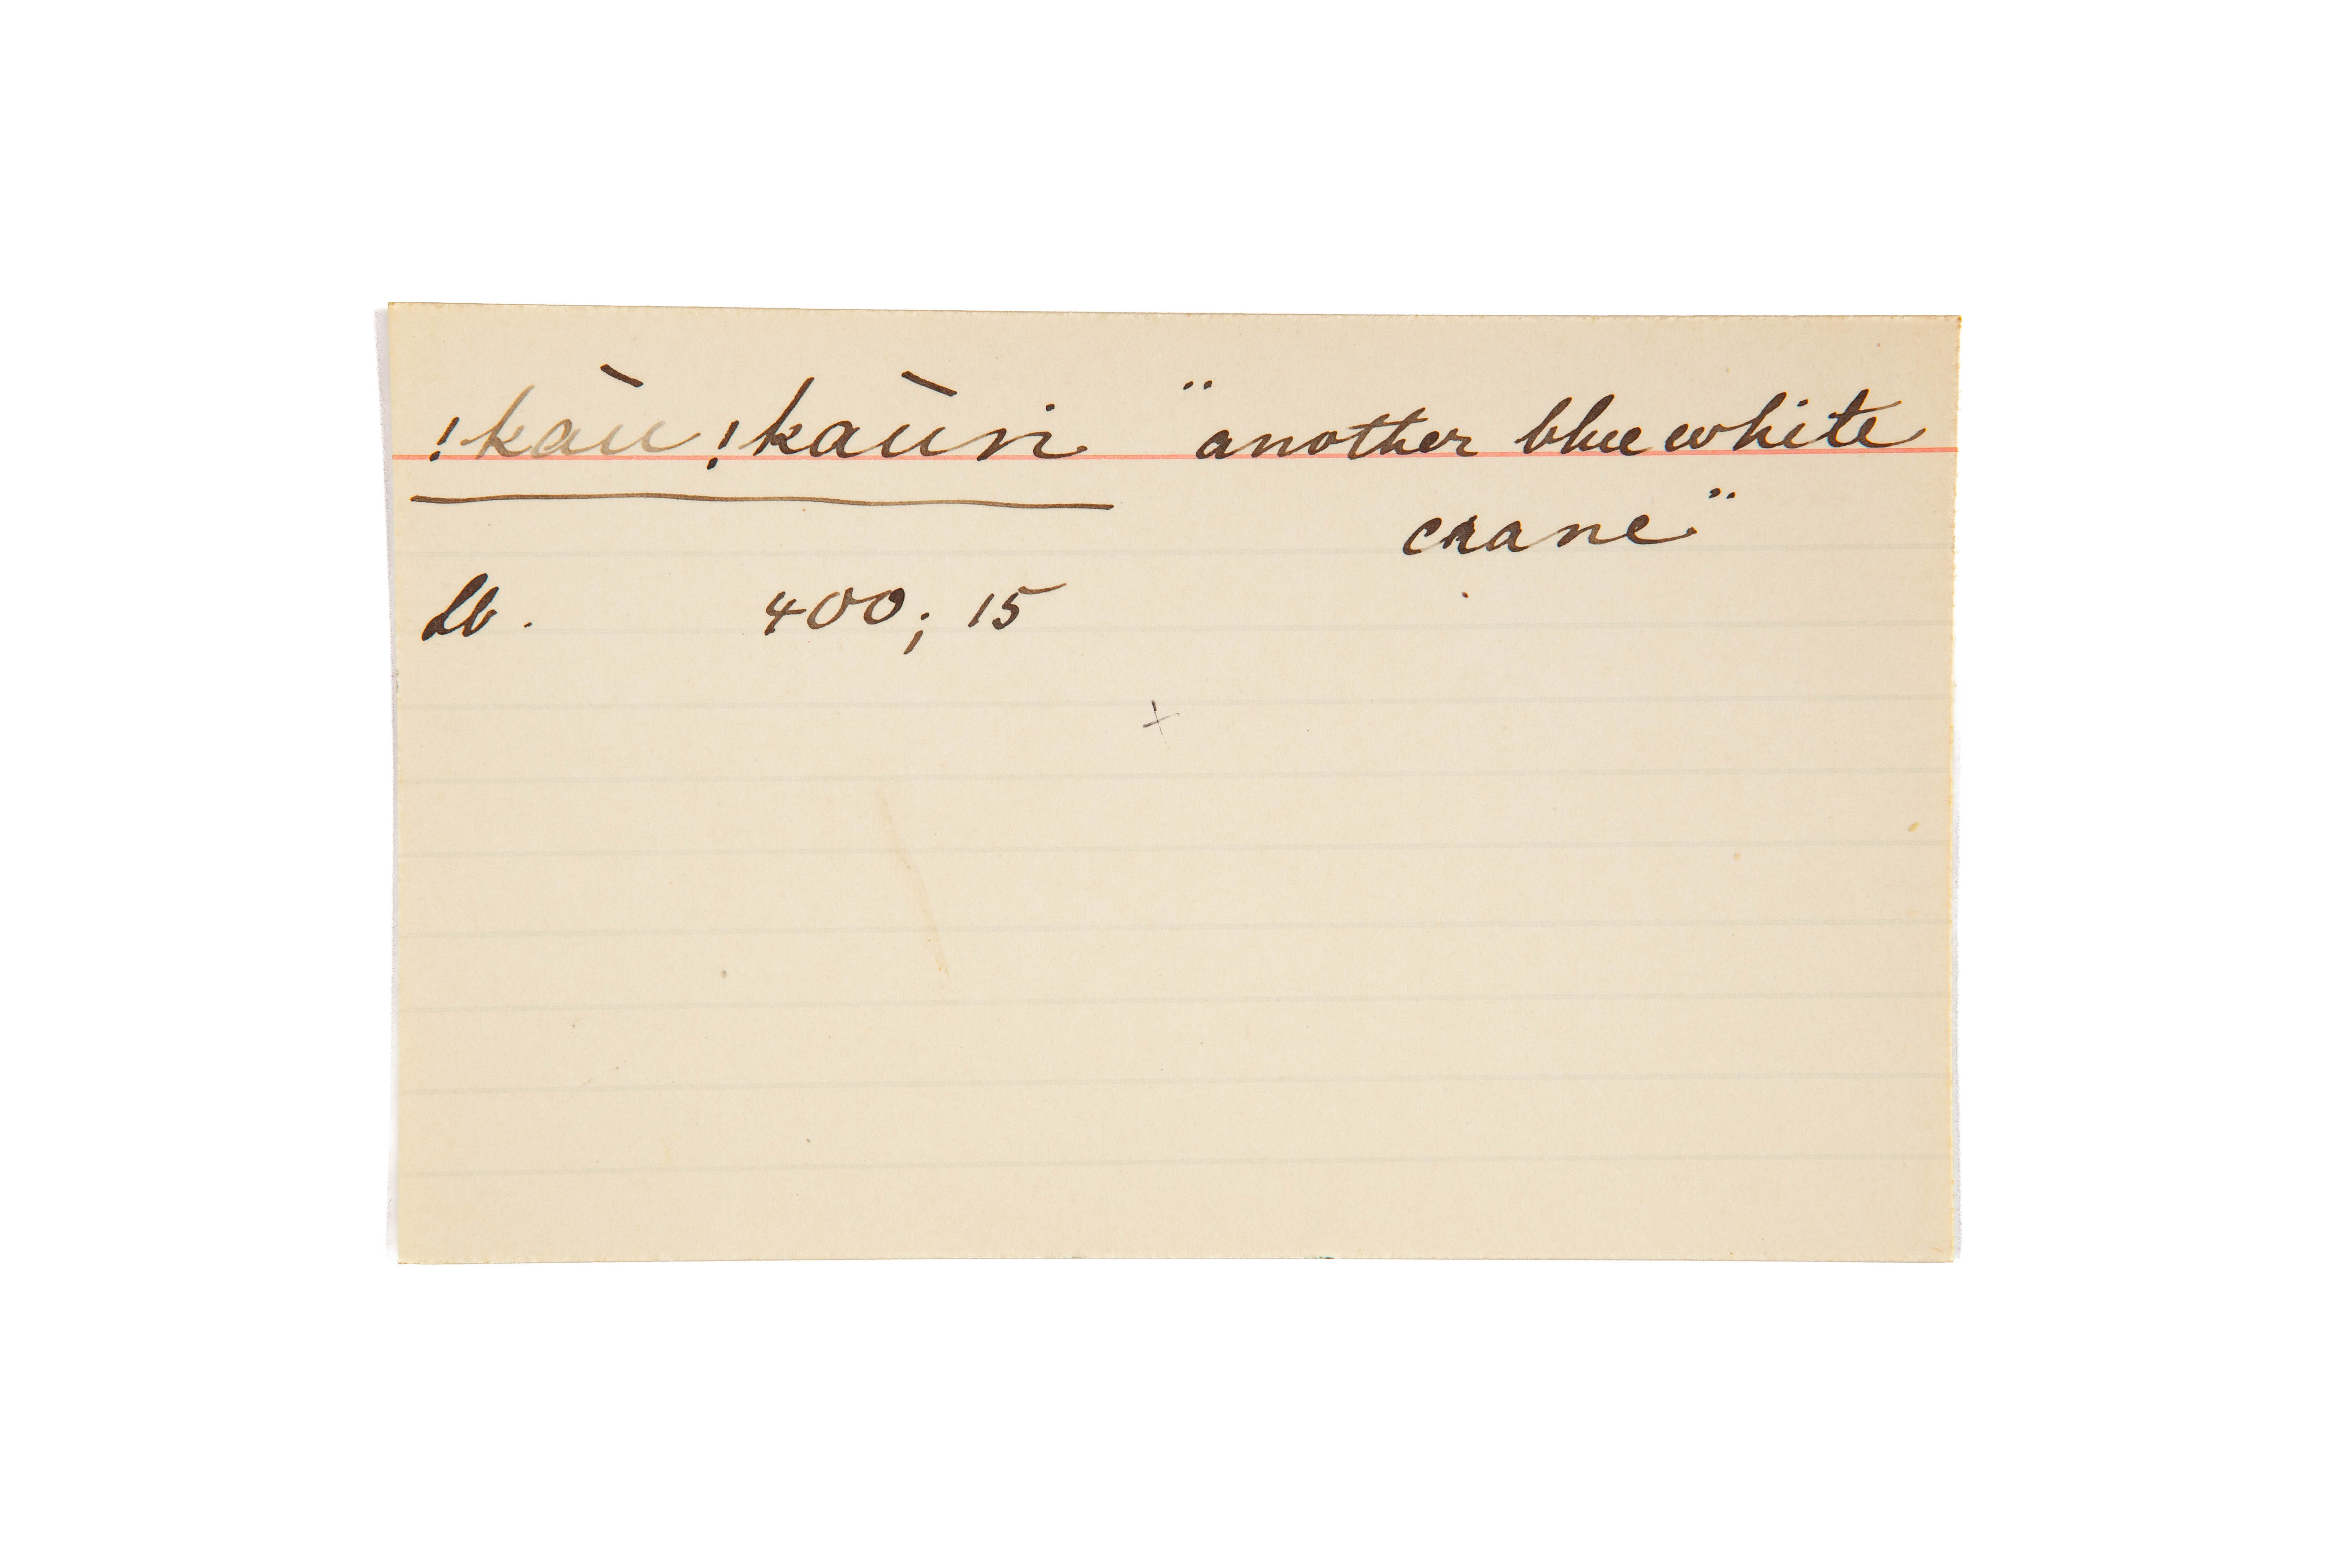 !kàu !kàuri "another blue white
crane"
Lb. 400; 15
+